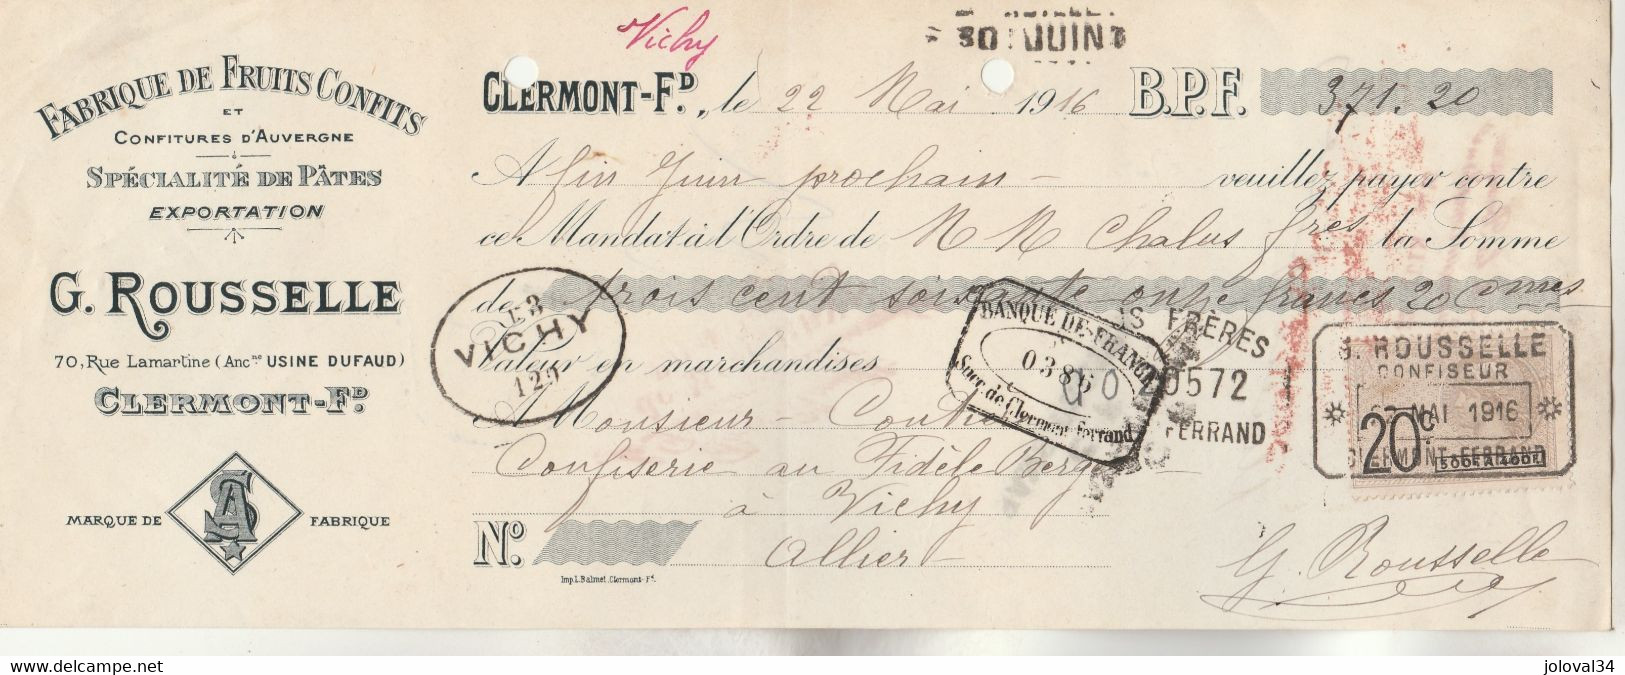 Vichy
30 JUIN
FABRIQUE DE FRUITS CONFITS
ET
CONFITURES D'AUVERGNE
SPÉCIALITÉ DE PÂTES
EXPORTATION
G. ROUSSELLE
70, Rue Lamartine (Ancne USINE DUFAUD)
CLERMONT-FD.
MARQUE DE FABRIQUE
CLERMONT-FD., le 22 Mai 1916 B.P.F. 371.20
A fin Juin prochain - veuillez payer contre
ce Mandat à l'Ordre de M M Chalus frères la Somme
de trois cent soixante onze francs 20 cmes
Valeur en marchandises
A Monsieur - 
Confiserie au Fidèle Berger
à Vichy
Allier -
No.
Imp. L. Balmet. Clermont-Fd.
VICHY
129
BANQUE DE FRANCE
0386
Succ. de Clermont-Ferrand
S FRÈRES
0572
FERRAND
G. ROUSSELLE
CONFISEUR
MAI 1916
CLERMONT-FERRAND
20c
500F A 400F
G. Rousselle
www.delcampe.net
joloval34